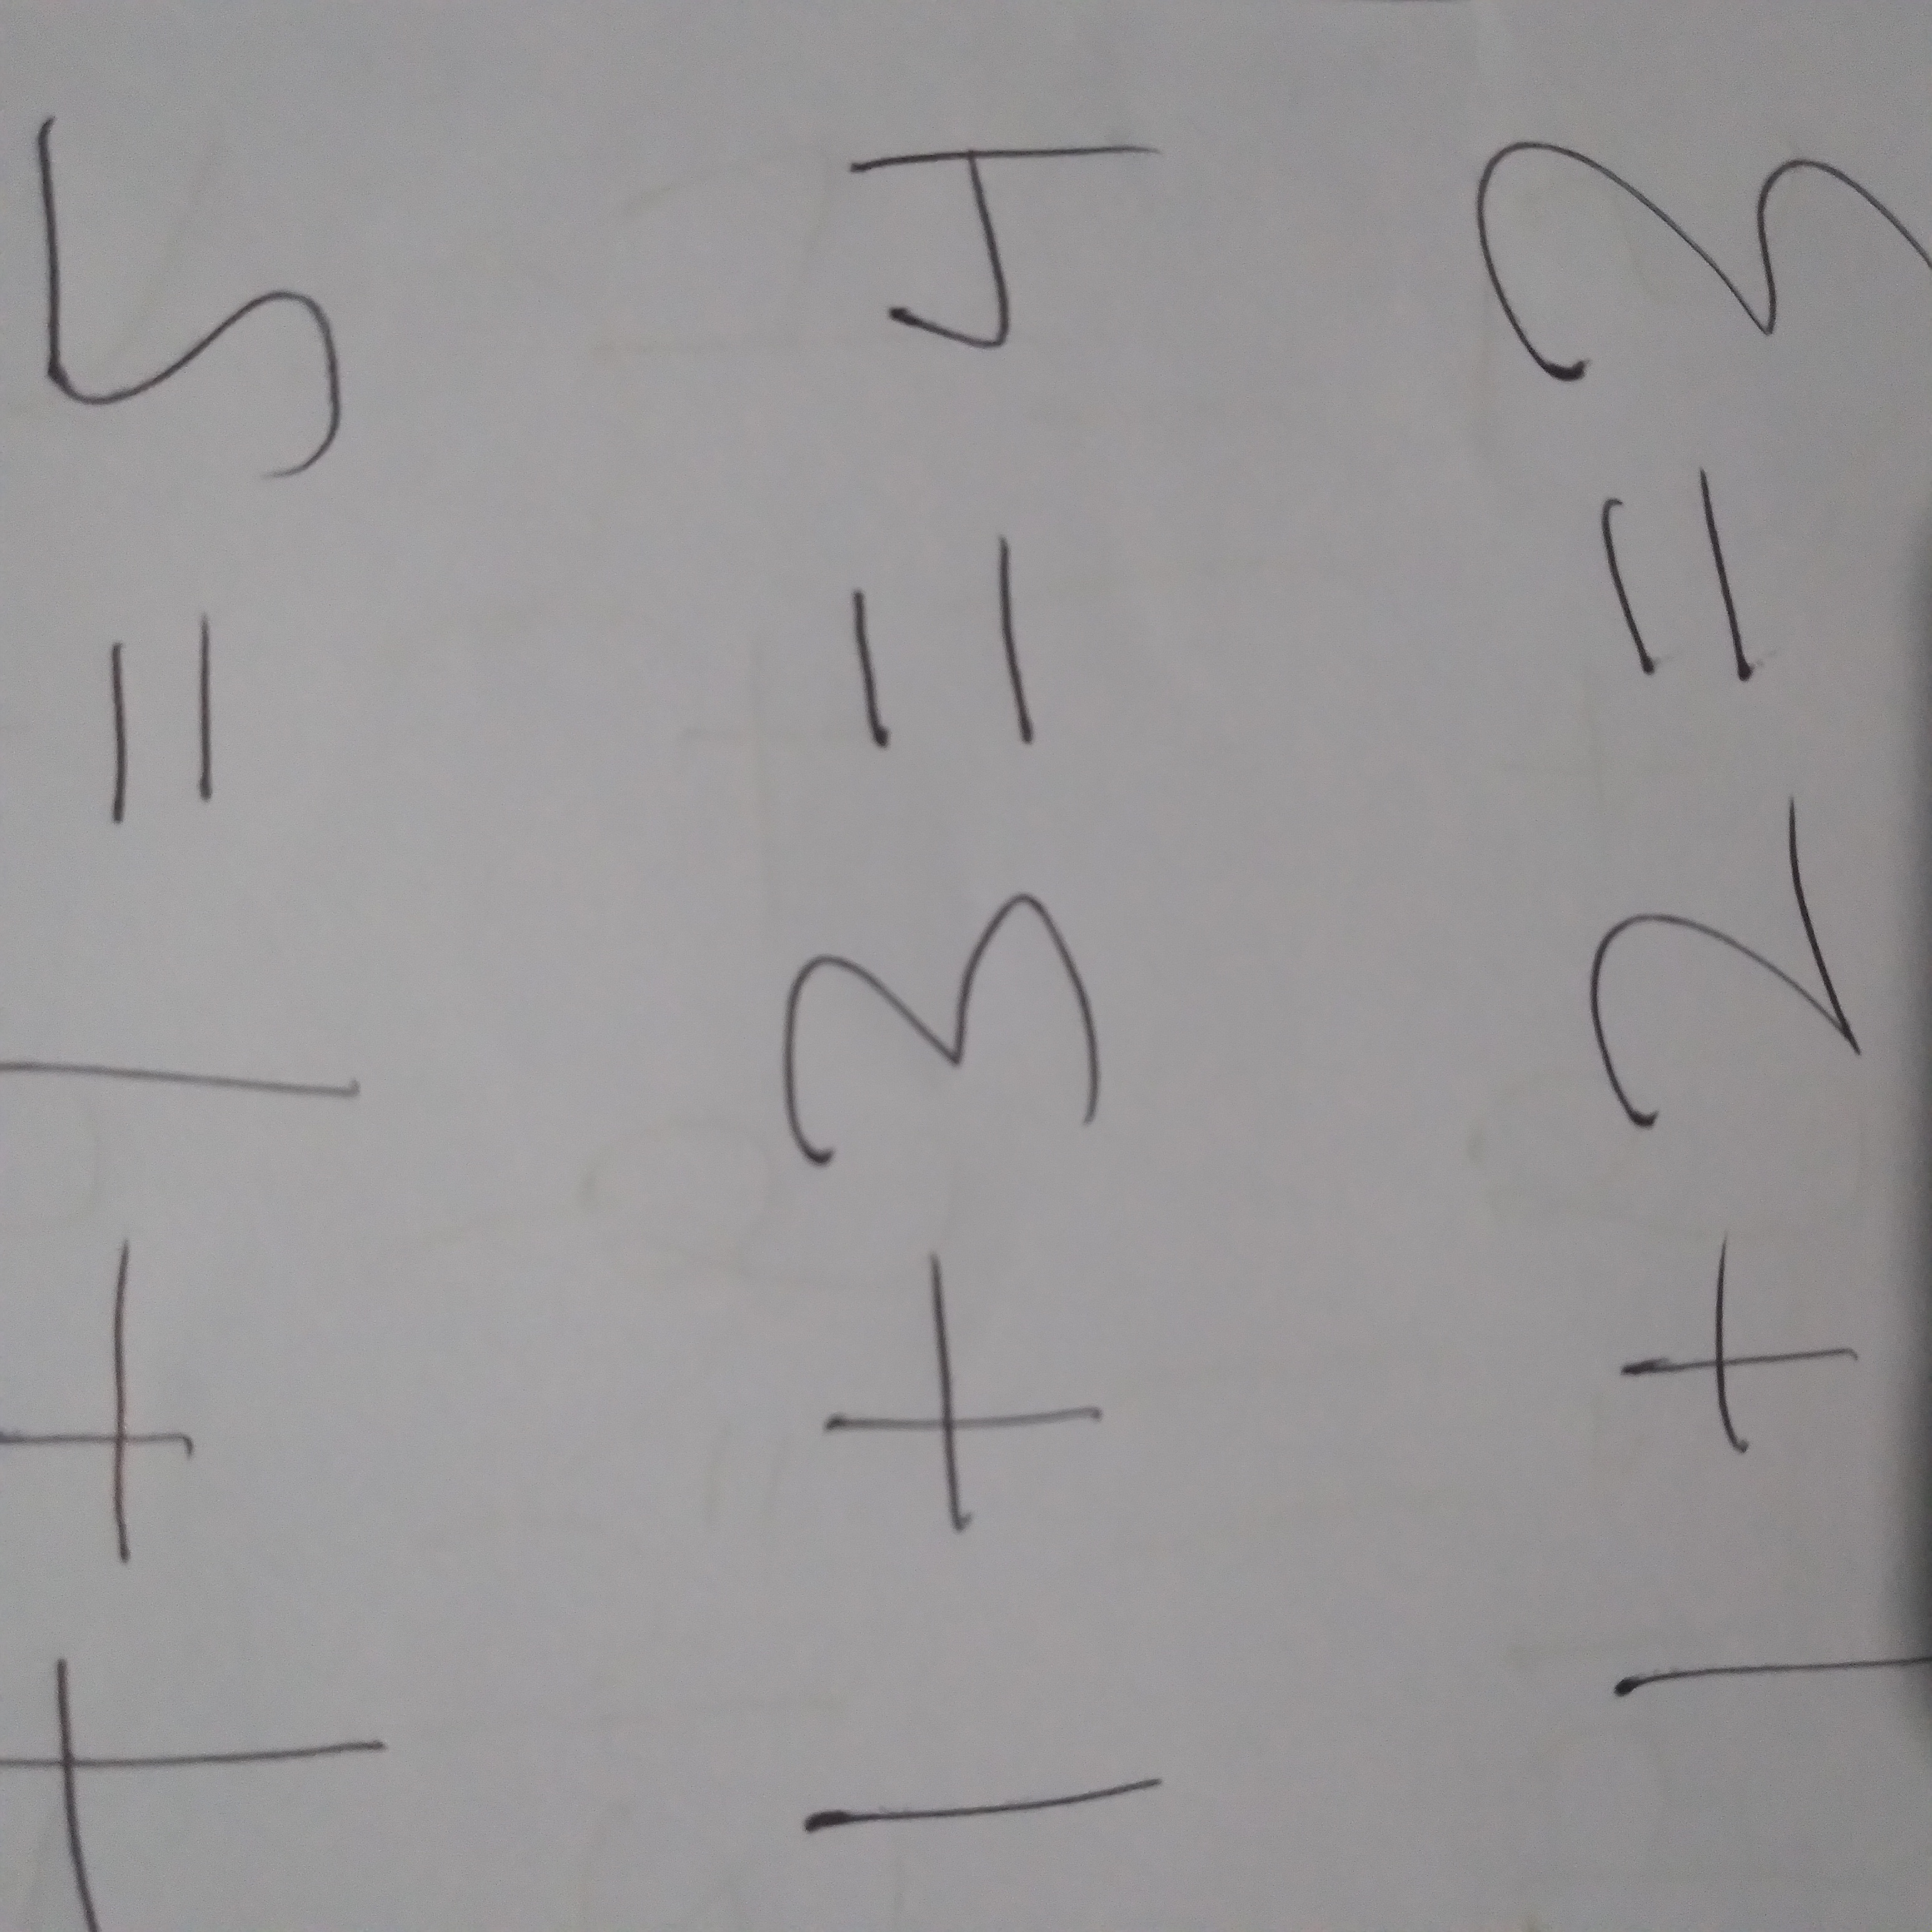 4 + 1 = 5
1 + 3 = 4
1 + 2 = 3